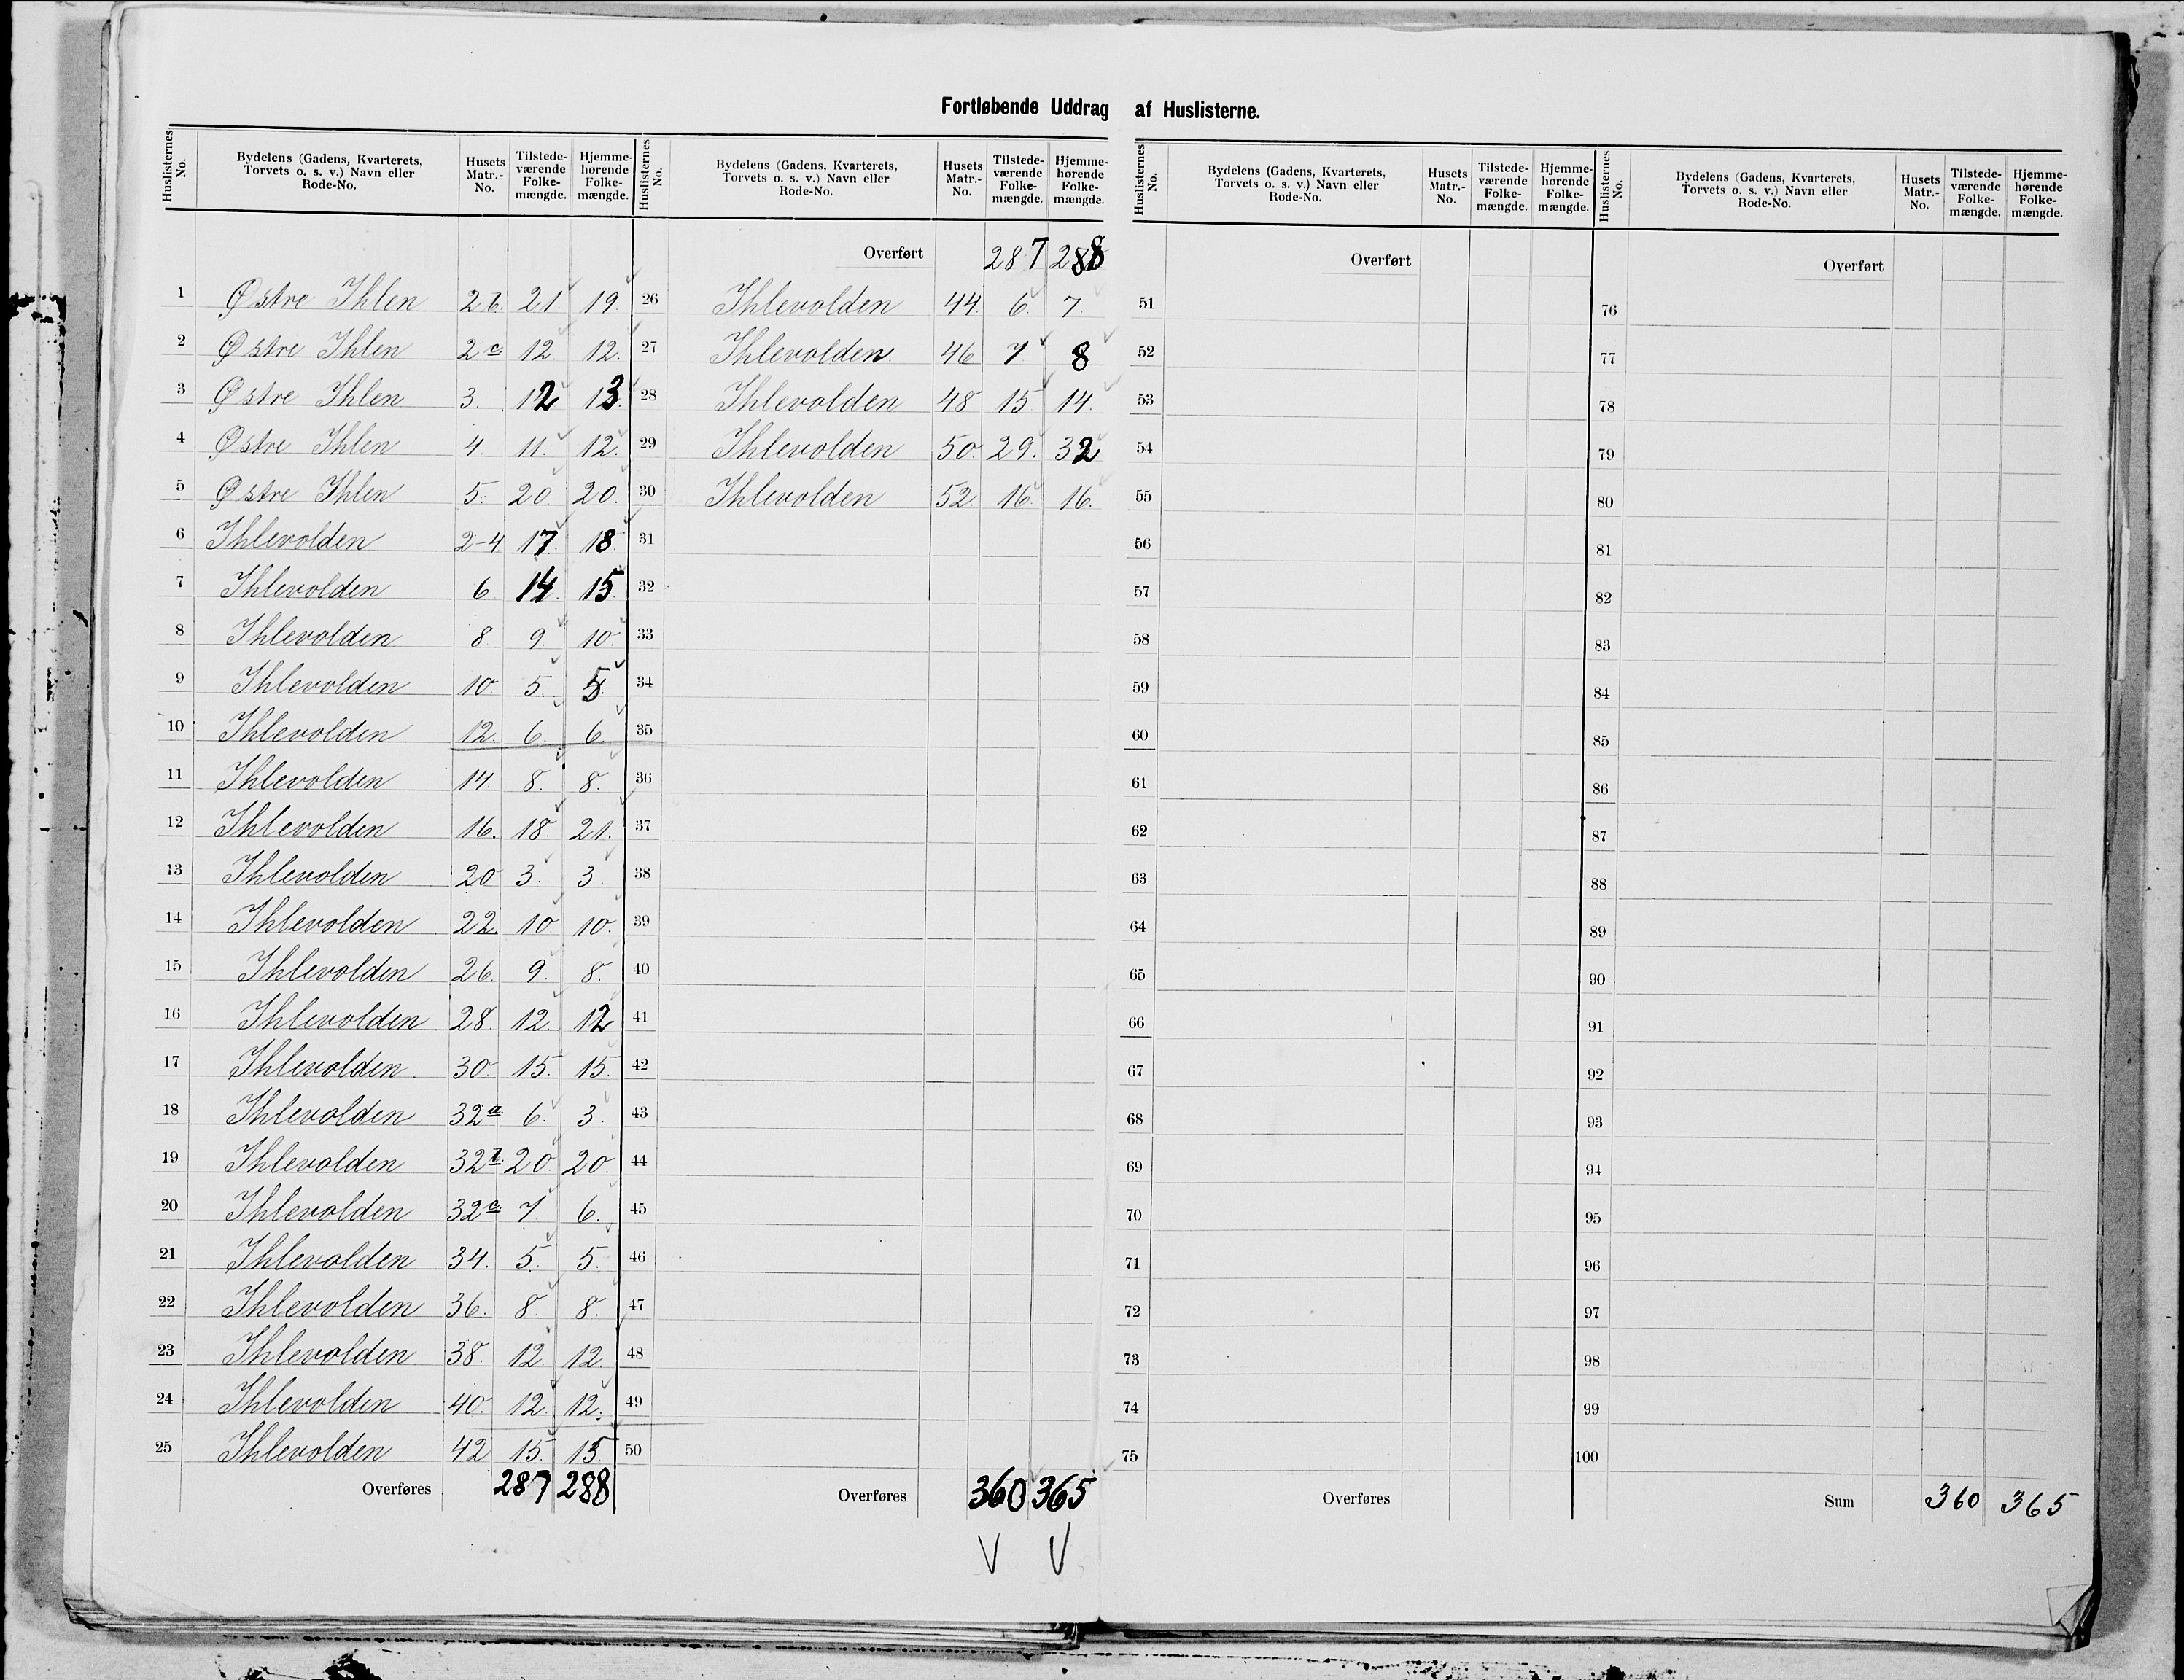 Fortløbende Uddrag af Huslisterne.
Huslisternes No. Bydelens (Gadens, Kvarterets, Torvets o. s. v.) Navn eller Rode-No. Husets Matr.-No. Tilstedeværende Folkemængde. Hjemmehørende Folkemængde.
1 Østre Ihlen 2b. 21. 19.
2 Østre Ihlen 2c 12. 12.
3 Østre Ihlen 3. 12 13.
4 Østre Ihlen 4. 11. 12.
5 Østre Ihlen 5. 20. 20.
6 Ihlevolden 2-4 17. 18.
7 Ihlevolden 6 14. 15.
8 Ihlevolden 8 9. 10.
9 Ihlevolden 10. 5. 5.
10 Ihlevolden 12. 6. 6
11 Ihlevolden 14. 8. 8.
12 Ihlevolden 16. 18. 21.
13 Ihlevolden 20 3. 3.
14 Ihlevolden 22. 10 10.
15 Ihlevolden 26. 9. 8.
16 Ihlevolden 28. 12. 12
17 Ihlevolden 30. 15. 15.
18 Ihlevolden 32a 6. 3.
19 Ihlevolden 32b. 20. 20.
20 Ihlevolden 32c. 7. 6.
21 Ihlevolden 34. 5. 5.
22 Ihlevolden 36. 8. 8.
23 Ihlevolden 38. 12. 12.
24 Ihlevolden 40. 12. 12.
25 Ihlevolden 42 15. 15.
Overføres 287 288
Huslisternes No. Bydelens (Gadens, Kvarterets, Torvets o. s. v.) Navn eller Rode-No. Husets Matr.-No. Tilstedeværende Folkemængde. Hjemmehørende Folkemængde.
Overført 287 288
26 Ihlevolden 44. 6. 7.
27 Ihlevolden. 46 7. 8
28 Ihlevolden 48 15 14.
29 Ihlevolden 50. 29. 32
30 Ihlevolden 52. 16. 16.
31
32
33
34
35
36
37
38
39
40
41
42
43
44
45
46
47
48
49
50
Overføres 360 365
V V
Huslisternes No. Bydelens (Gadens, Kvarterets, Torvets o. s. v.) Navn eller Rode-No. Husets Matr.-No. Tilstedeværende Folkemængde. Hjemmehørende Folkemængde.
Overført
51
52
53
54
55
56
57
58
59
60
61
62
63
64
65
66
67
68
69
70
71
72
73
74
75
Overføres
Huslisternes No. Bydelens (Gadens, Kvarterets, Torvets o. s. v.) Navn eller Rode-No. Husets Matr.-No. Tilstedeværende Folkemængde. Hjemmehørende Folkemængde.
Overført
76
77
78
79
80
81
82
83
84
85
86
87
88
89
90
91
92
93
94
95
96
97
98
99
100
Sum 360 365